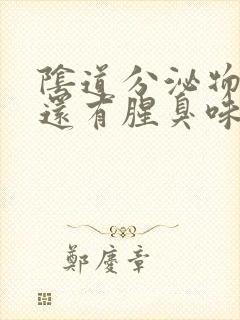 陰道分泌物
還有腥臭味
鄭慶章